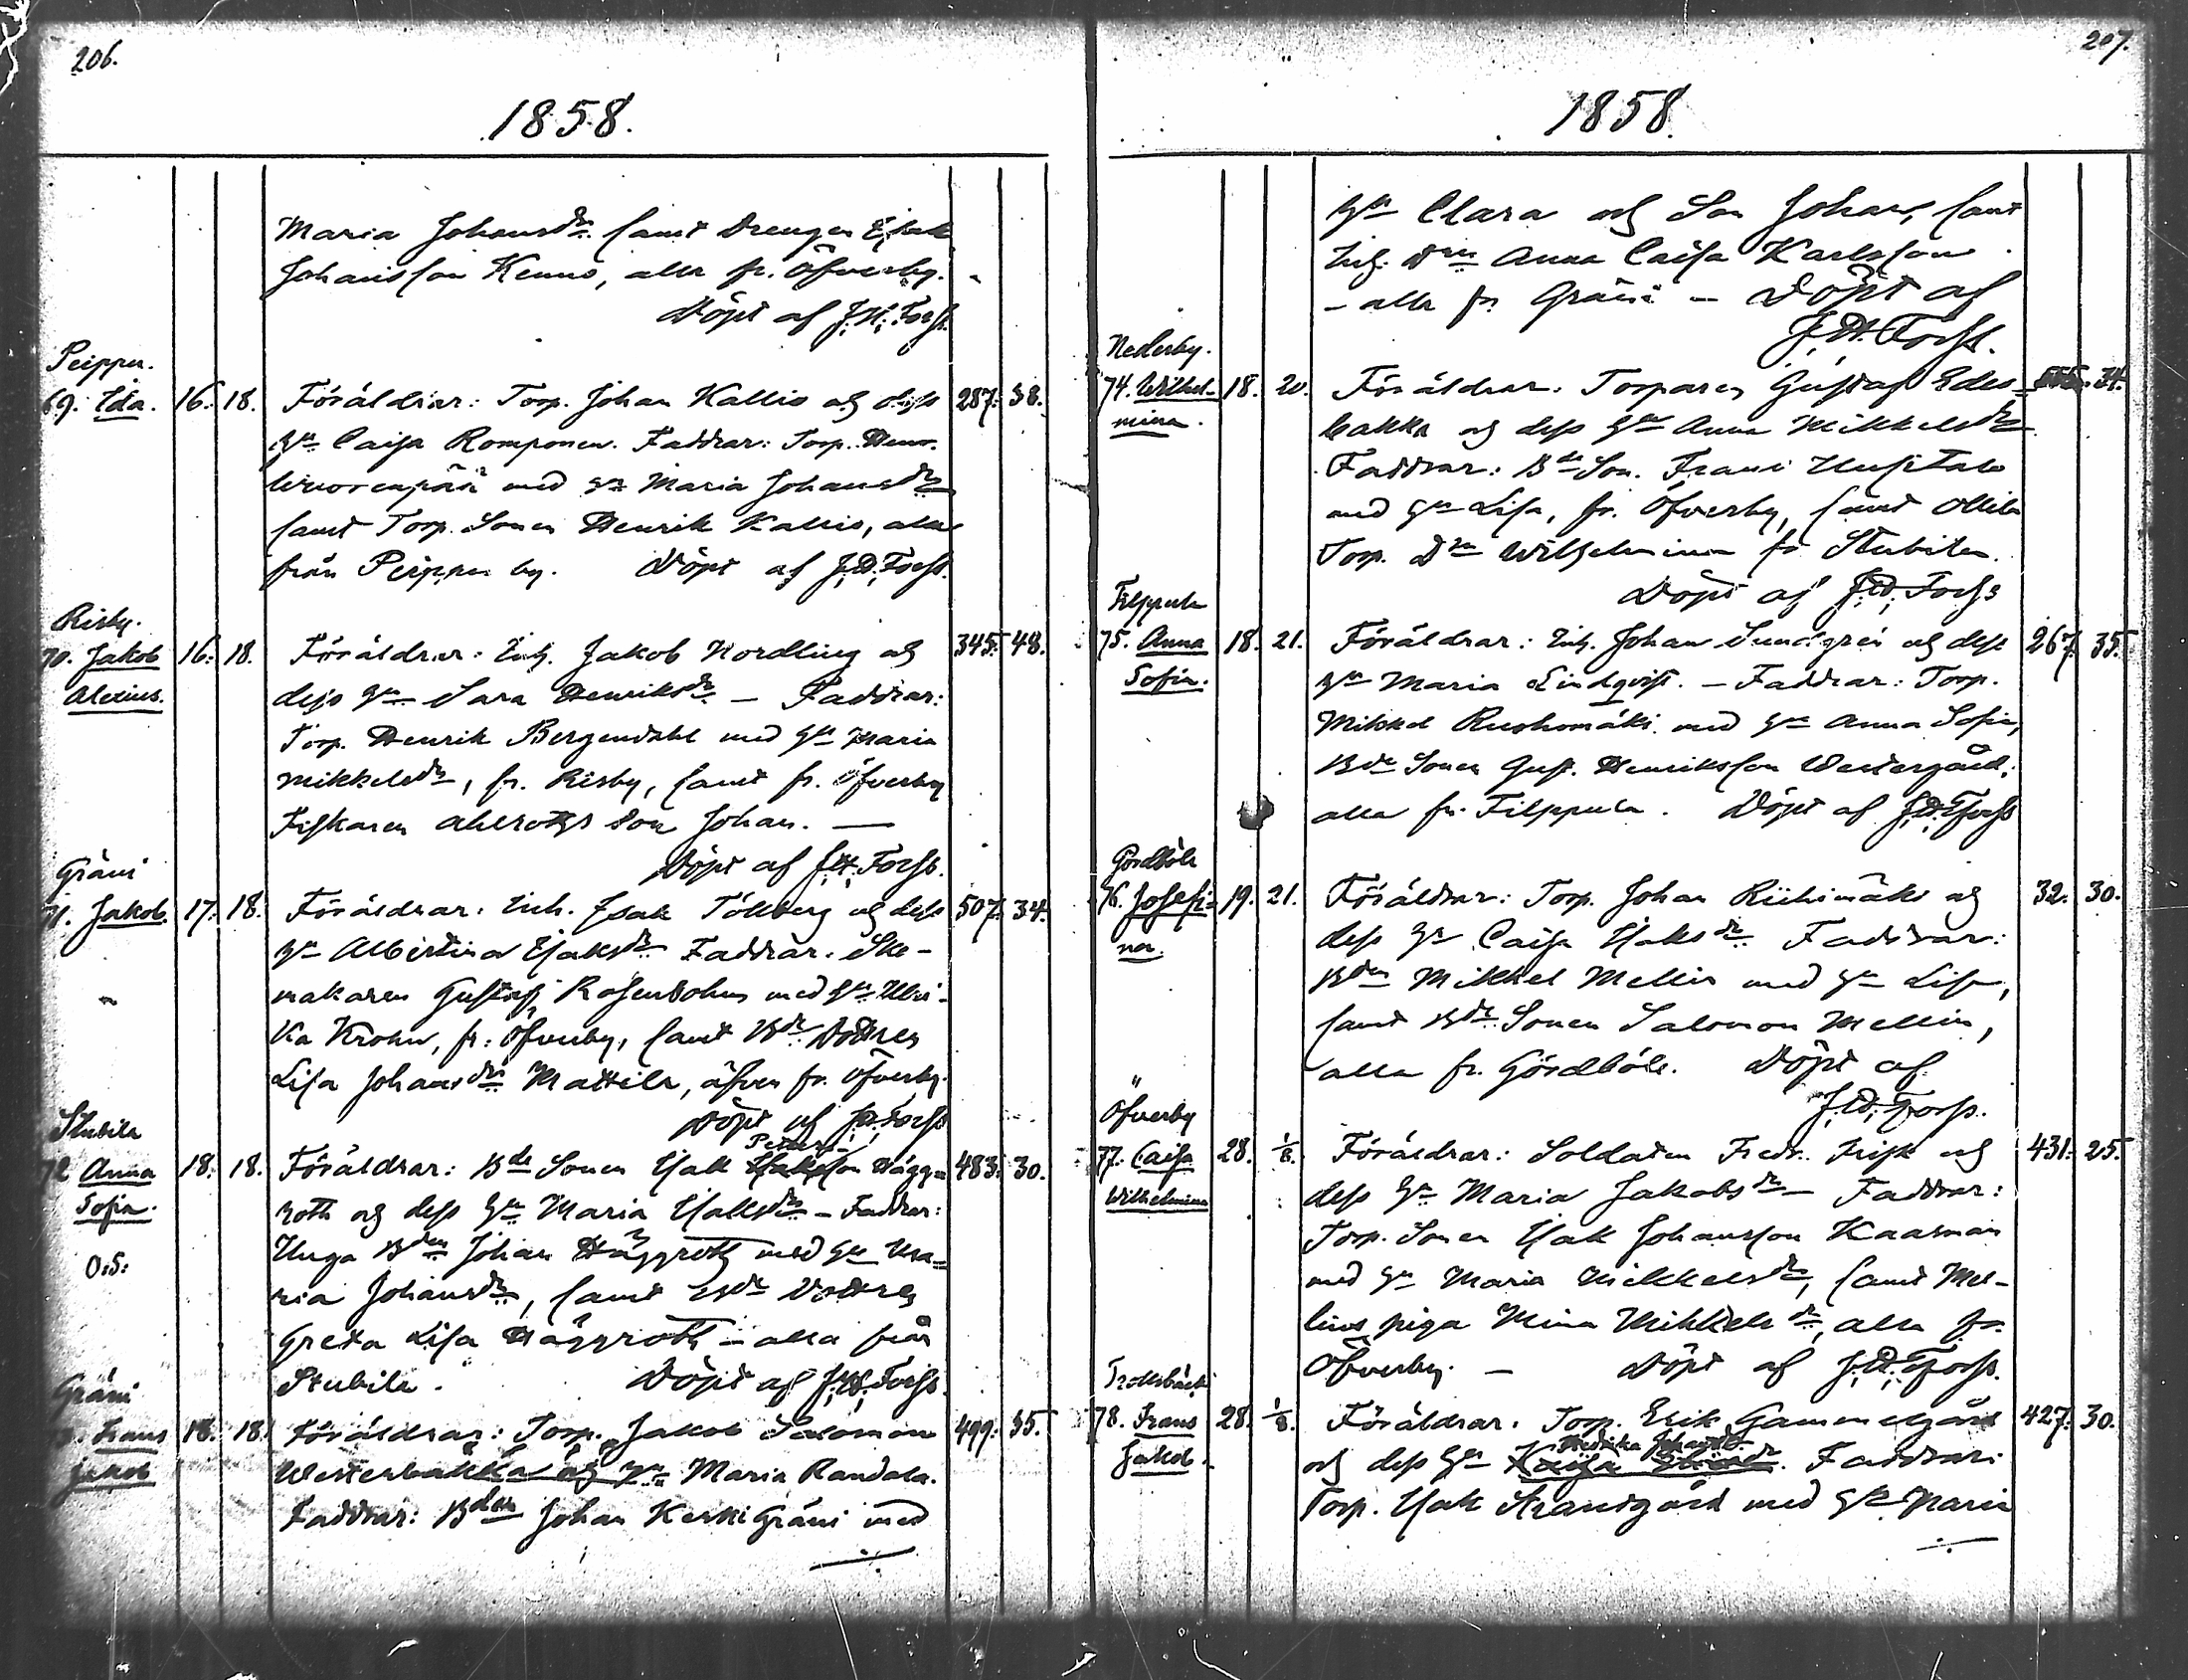 206.
1858.
Maria Johansdr. samt Drengen Isak
Johansson Kenno, alla fr. Öfverby.
Döpt af J.H. Forss.
Peippu.
69. Ida. 16. 18. Föräldrar: Torp. Johan Kallio och dess 287. 38.
hu Caisa Romponen. Faddrar: Torp. Henr.
med hu Maria Johansdr
samt Torp. Sonen Henrik Kallio, alla
från Peippu by. Döpt af J.H. Forss.
Risby.
70. Jakob 16. 18. Föräldrar: Inh. Jakob Nordling och 345. 48.
Alexius. dess hu Sara Henriksdr — Faddrar:
Torp. Henrik Bergendahl med hu Maria
Mikkelsdr, fr. Risby, samt fr. Öfverby
Fiskaren Ahlroths Son Johan. —
Döpt af J.H. Forss.
Gräni
71. Jakob. 17. 18. Föräldrar: Inh. Isak Tållberg och dess 507. 34.
hu Albertina Isaksdr Faddrar: Sko-
makaren Gustaf Rosenbohm med hu Ulri-
ka Krohn, fr. Öfverby, samt Bde Dottren
Lisa Johansdr Mattila, äfven fr. Öfverby.
Döpt af J.H. Forss
Stubila
72 Anna 18. 18. Föräldrar: Bde Sonen Isak Petters- Isaksson Hägg= 483. 30.
Sofia. roth och dess hu Maria Isaksdr — Faddrar:
Unga Bden Johan Häggroth med hu Ma=
O.S. ria Johansdr, samt Bde Dottren
Greta Lisa Häggroth — alla från
Stubila. Döpt af J.H. Forss.
Gräni
73. Frans 18. 18. Föräldrar: Torp. Jakob Salomon 499. 35.
Jakob Westerbakka och hu Maria Randala.
Faddrar: Bden Johan Keski Gräni med
207.
1858.
hu Clara och Son Johan, samt
Inh. Drn Anna Caisa Karlsson
— alla fr. Gräni — Döpt af
J.H. Forss.
Nederby.
74. Wilhel- 18. 20. Föräldrar: Torparen Gustaf Edes= 34.
mina. bakka och dess hu Anna Mikkelsdr
Faddrar: Bde Son. Frans Uusitalo
med hu Lisa, fr. Öfverby, samt Ollila
Torp. Dr Wilhelmina fr Stubila.
Döpt af J.H. Forss
Filppula
75. Anna 18. 21. Föräldrar: Inh. Johan Sundgren och dess 267. 35.
Sofia. hu Maria Lindqvist. — Faddrar: Torp.
Mikkel Ruohomäki med hu Anna Sofia,
Bde Sonen Gust. Henriksson Westergård,
alla fr. Filppula. Döpt af J.H. Forss
Gördböle
76. Josefi= 19. 21. Föräldrar: Torp. Johan Riihimäki och 32. 30.
na. dess hu Caisa Isaksdr Faddrar:
Bden Mikkel Mellin med hu Lisa,
samt Bde Sonen Salomon Mellin,
alla fr. Gördböle. Döpt af
J.H. Forss.
Öfverby
77. Caisa 28. 1/8. Föräldrar: Soldaten Fredr. Frisk och 431. 25.
Wilhelmina dess hu Maria Jakobsdr — Faddrar:
Torp. Sonen Isak Johansson Kaasman
med hu Maria Mikkelsdr, samt Mel-
lins piga Mina Mikkelsdr, alla fr.
Öfverby. — Döpt af J.H. Forss.
Trollsbäck
78. Frans 28. 1/8. Föräldrar: Torp. Erik Gammelgård 427. 30.
Jakob. och dess hu Fredrika Johansdr. Faddrar:
Torp. Isak Strandgård med hu Maria